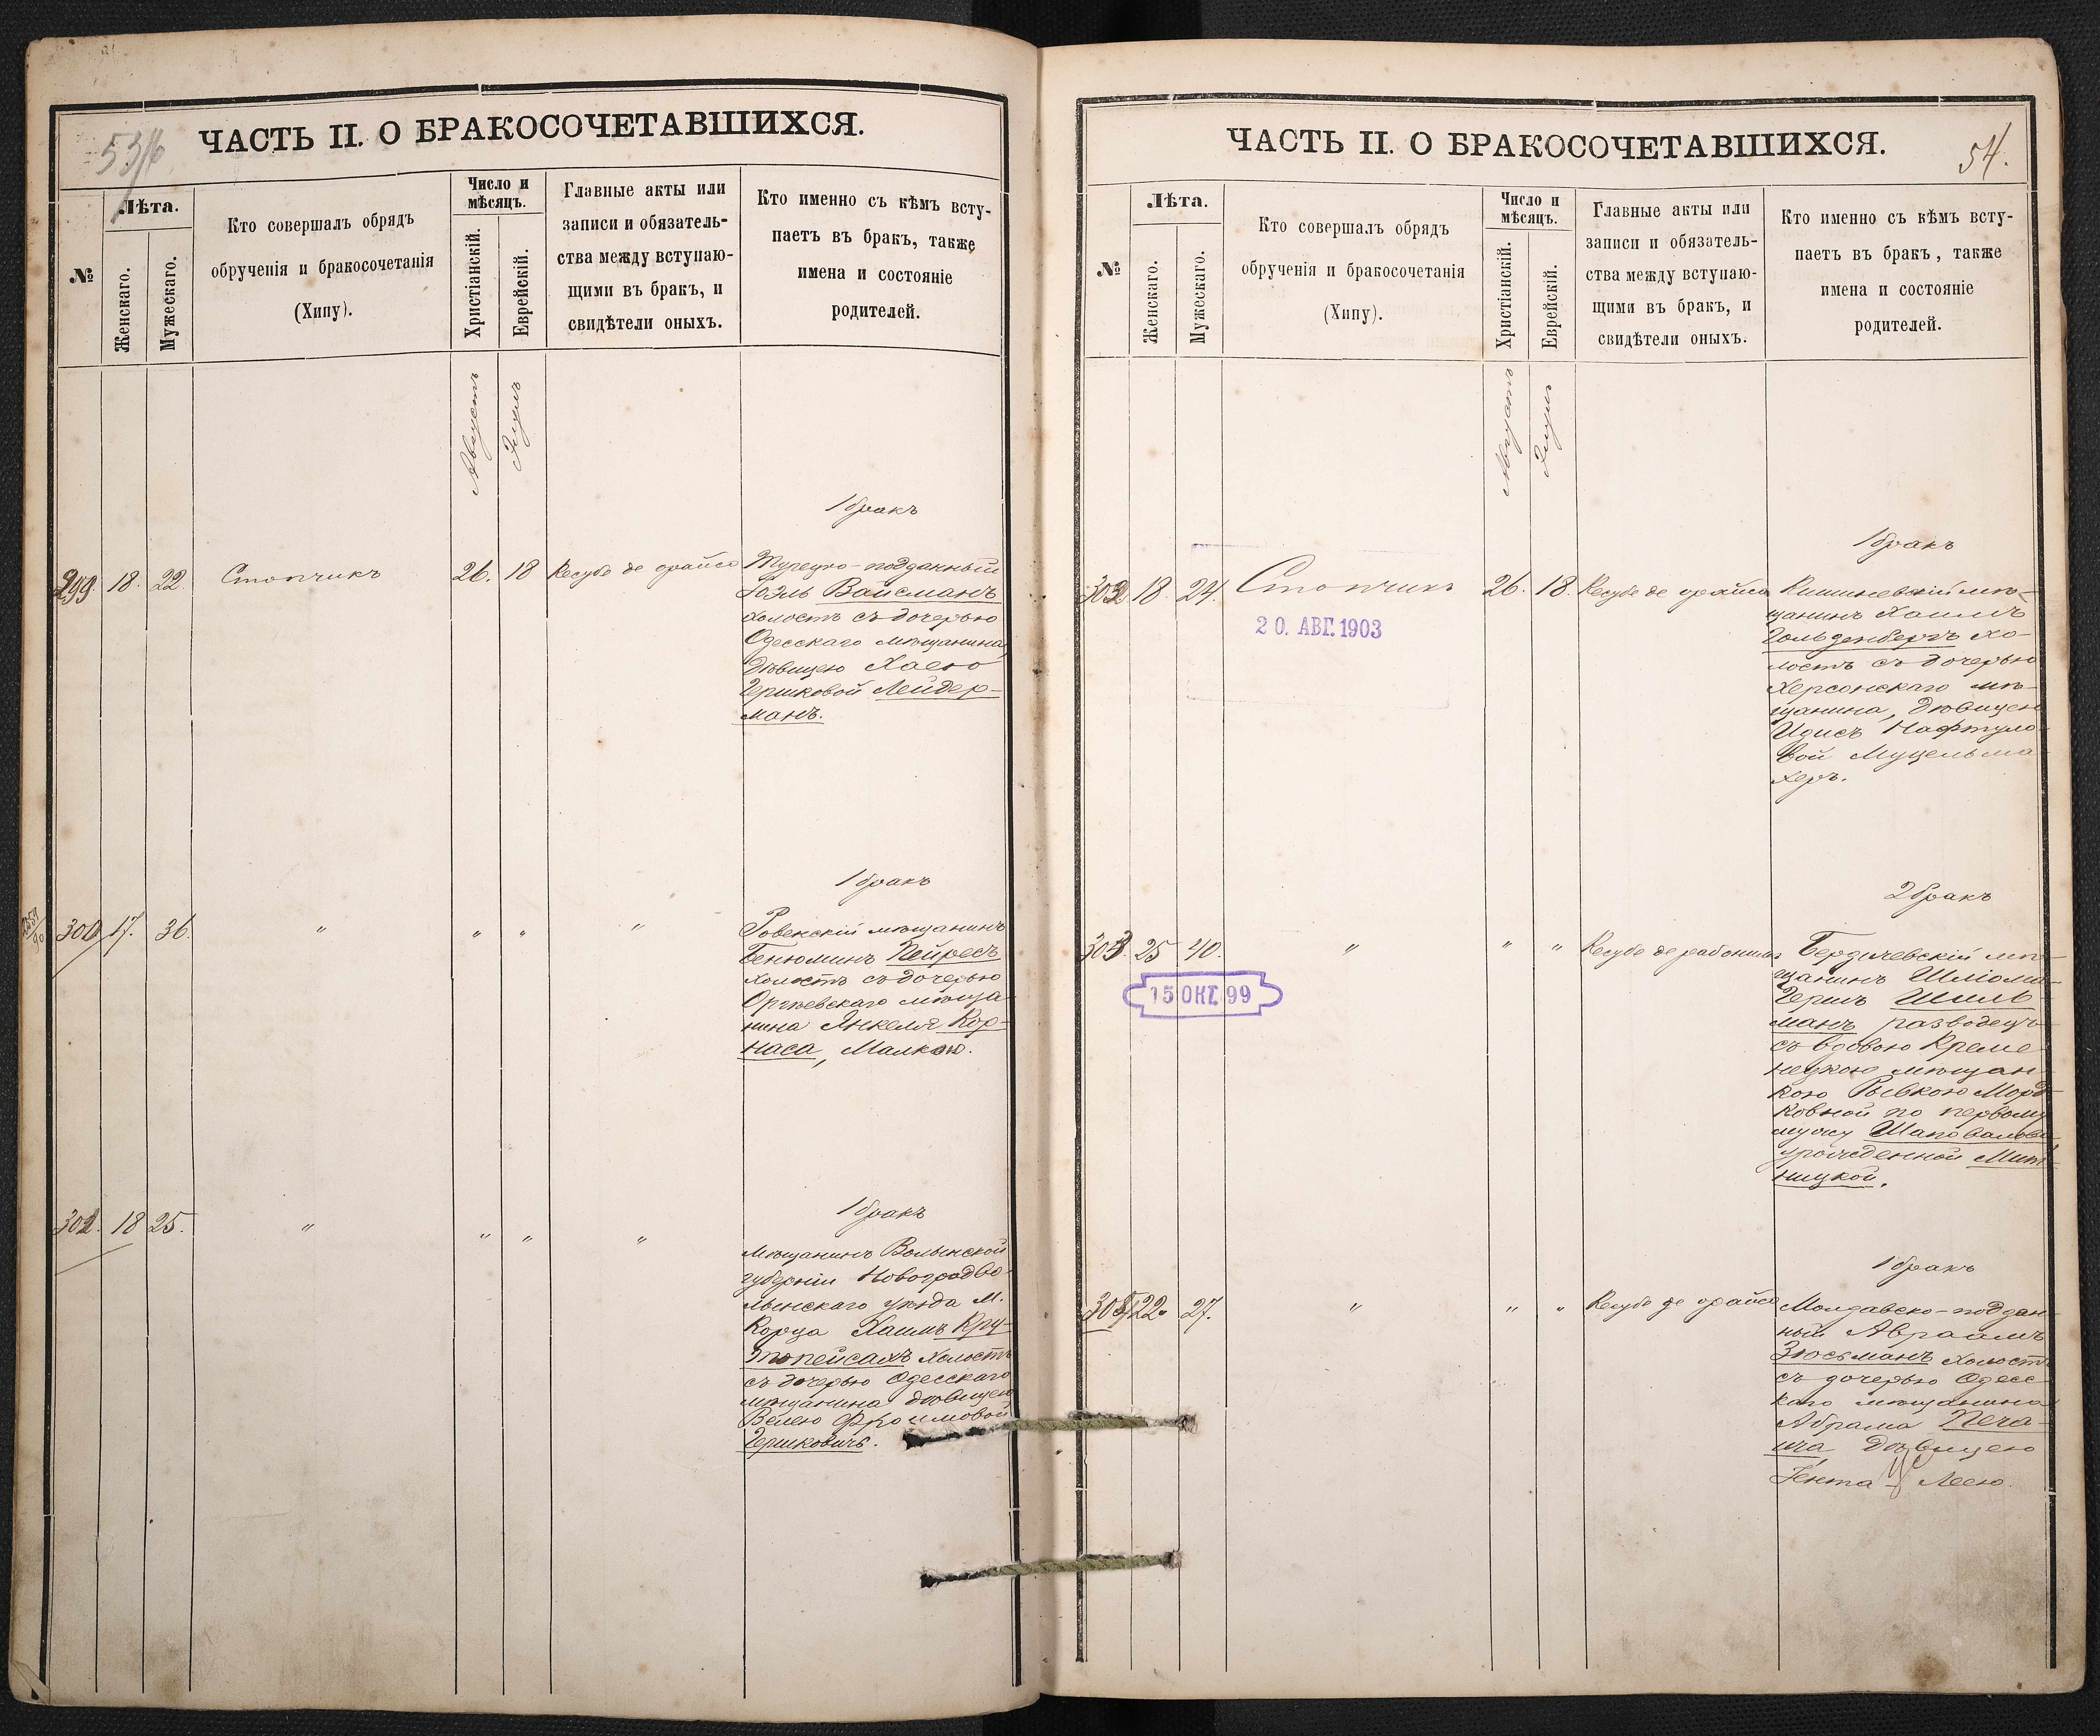 53/б
ЧАСТЬ II. О БРАКОСОЧЕТАВШИХСЯ.
№
Лѣта.
Женскаго.
Мужескаго.
Кто совершалъ обрядъ
обрученія и бракосочетанія
(Хипу).
Число и
мѣсяцъ.
Христіанскій.
Еврейскій.
Главные акты или
записи и обязатель-
ства между вступаю-
щими въ бракъ, и
свидѣтели оныхъ.
Кто именно съ кѣмъ всту-
паетъ въ бракъ, также
имена и состояніе
родителей.
Августъ
Элулъ
1 бракъ
299. 18. 22. Стопчикъ 26. 18 Кесубе де орайсо Турецко-подданный
Іоэль Вайсманъ
холостъ съ дочерью
Одесскаго мѣщанина,
Дѣвицею Хаею
Гершковой Лейдер-
манъ.
1 бракъ
300 17. 36. " " " " Ровенскій мѣщанинъ
Бенюминъ Пейресъ
холостъ съ дочерью
Оргѣевскаго мѣща-
нина Янкеля Кор-
наса, Малкою.
1 бракъ
301. 18 25. " " " " Мѣщанинъ Волынской
губерніи Новоградво-
лынскаго уѣзда М.
Корца Хаимъ Кру-
топейсахъ холостъ
съ дочерью Одесскаго
мѣщанина дѣвицею
Велею Фроимовой
Гершковичъ.
ЧАСТЬ II. О БРАКОСОЧЕТАВШИХСЯ.
54.
№
Лѣта.
Женскаго.
Мужескаго.
Кто совершалъ обрядъ
обрученія и бракосочетанія
(Хипу).
Число и
мѣсяцъ.
Христіанскій.
Еврейскій.
Главные акты или
записи и обязатель-
ства между вступаю-
щими въ бракъ, и
свидѣтели оныхъ.
Кто именно съ кѣмъ всту-
паетъ въ бракъ, также
имена и состояніе
родителей.
Августъ
Элулъ
1 бракъ
302 18. 24. Стопчикъ 26. 18. Кесубе де орайсо Кишиневскій мѣ-
20. АВГ. 1903
щанинъ Хаимъ
Гольденбергъ хо-
лостъ съ дочерью
Херсонскаго мѣ-
щанина, Дѣвицею
Идисъ Нафтуло-
вой Муцельма-
херъ.
2 бракъ
303. 25 40. " " " Кесубе де рабонимъ Бердичевскій мѣ-
15 ОКТ. 99
щанинъ Шліома-
Гершъ Шиль-
манъ разводецъ
съ вдовою Креме-
нецкою мѣщан-
кою Рывкою Морд-
ковной по первому
мужу Шаповалова
урожденной Мит-
ницкой.
1 бракъ
305 22. 27. " " " Кесубе де орайсо Молдавско-поддан-
ный Авраамъ
Зюсьманъ холостъ
съ дочерью Одесс-
каго мѣщанина
Абрама Печа-
Дѣвицею
Гента - Леею.